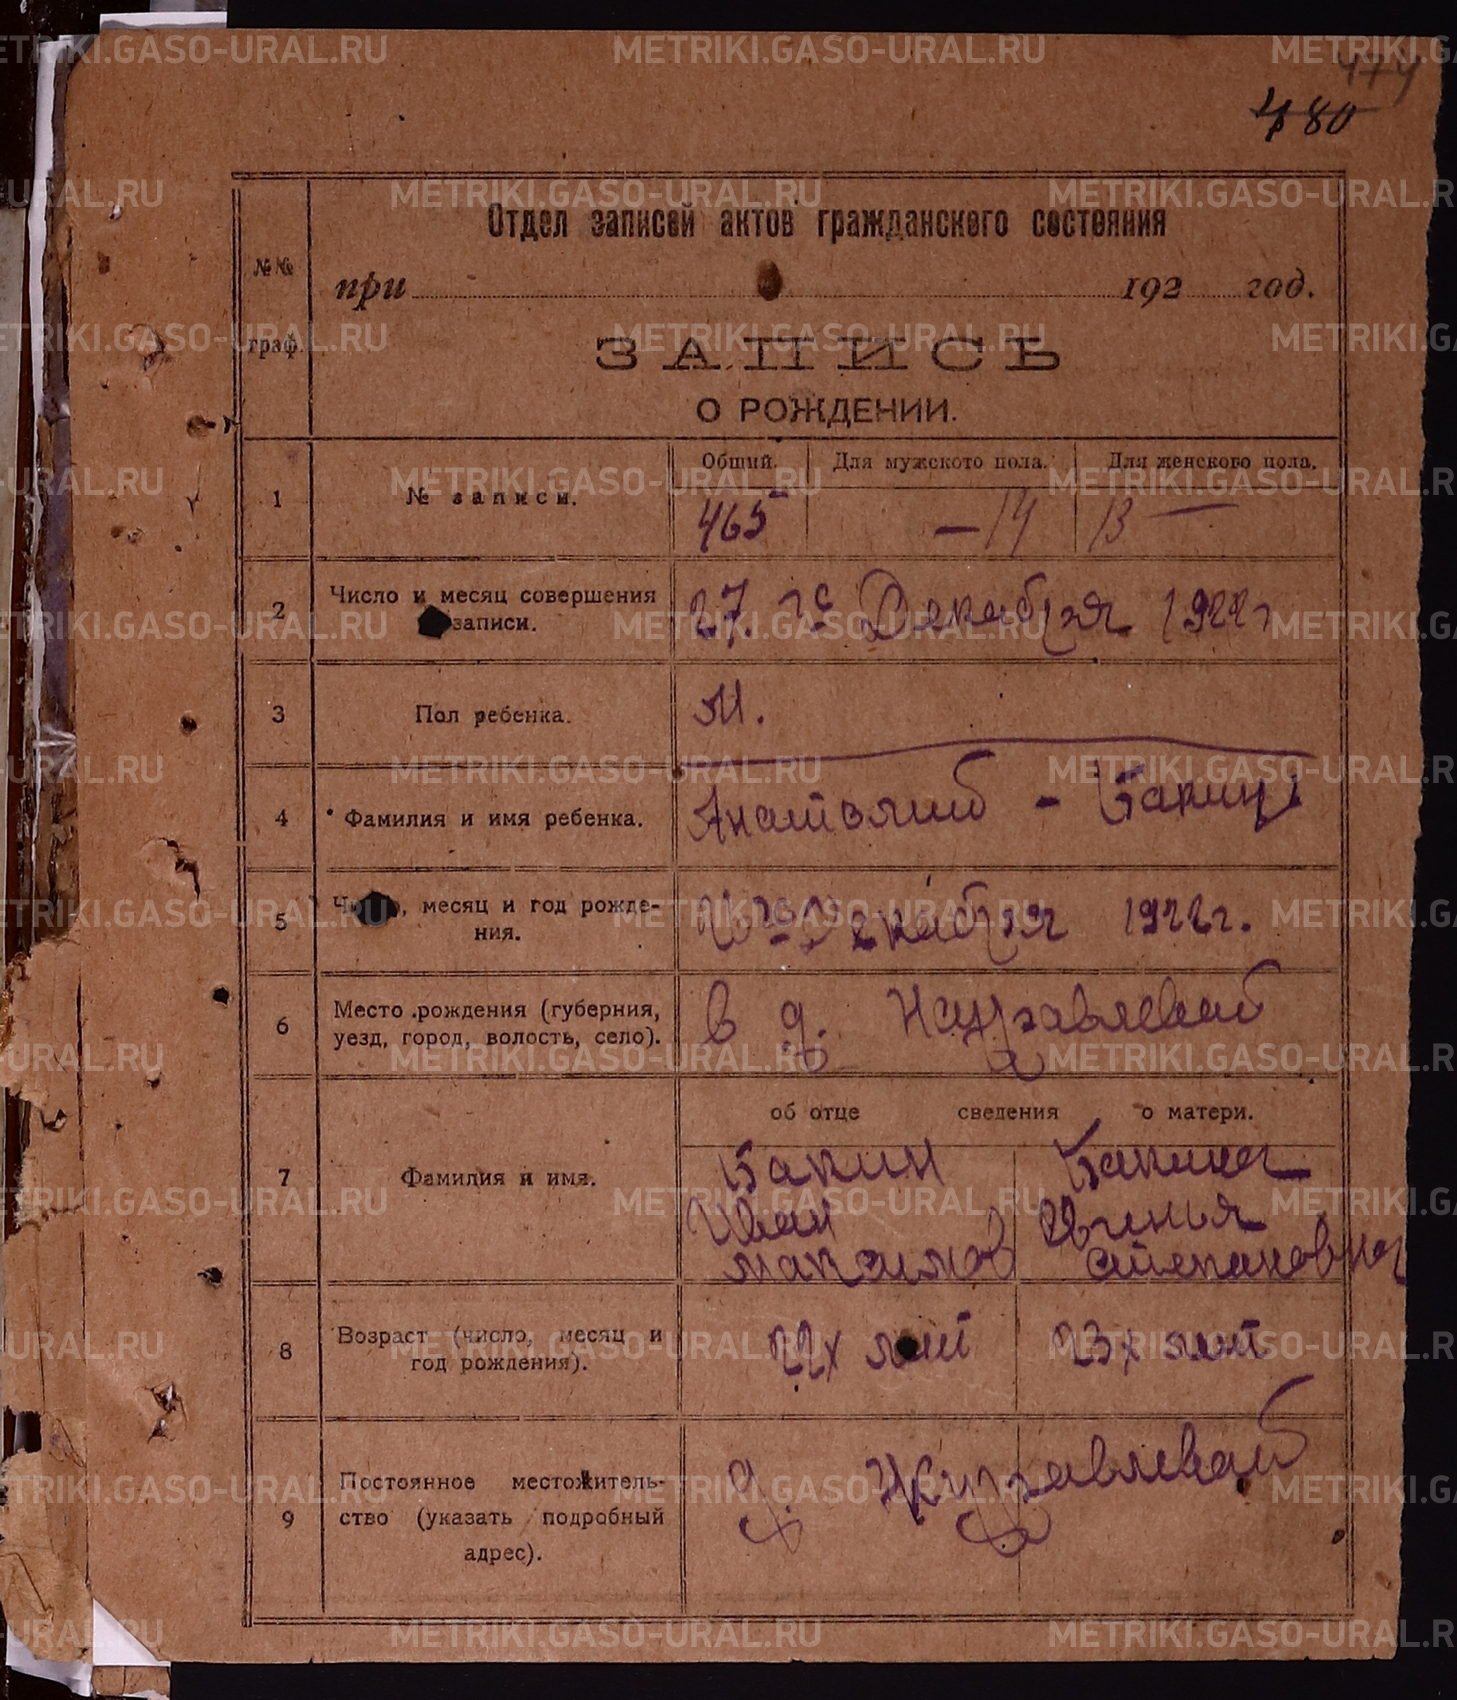 METRIKI.GASO-URAL.RU
474
480
Отдел записей актов гражданского состояния
№№ граф.
при 192 год.
ЗАПИСЬ
О РОЖДЕНИИ.
Общий. Для мужского пола. Для женского пола.
1 № записи. 465 — 14 13 —
2 Число и месяц совершения записи. 27. го Декабря 1922 г
3 Пол ребенка. М.
4 Фамилия и имя ребенка. Анатолий - Бакин
5 месяц и год рождения. Декабря 1922 г.
6 Место рождения (губерния, уезд, город, волость, село). в д. Журавлевой
об отце сведения о матери.
7 Фамилия и имя.
Бакин Бакина
Иван Евгенья
Максимов Степановна
8 Возраст (число, месяц и год рождения). 22х лет 23х лет
9 Постоянное местожительство (указать подробный адрес). д. Журавлевой